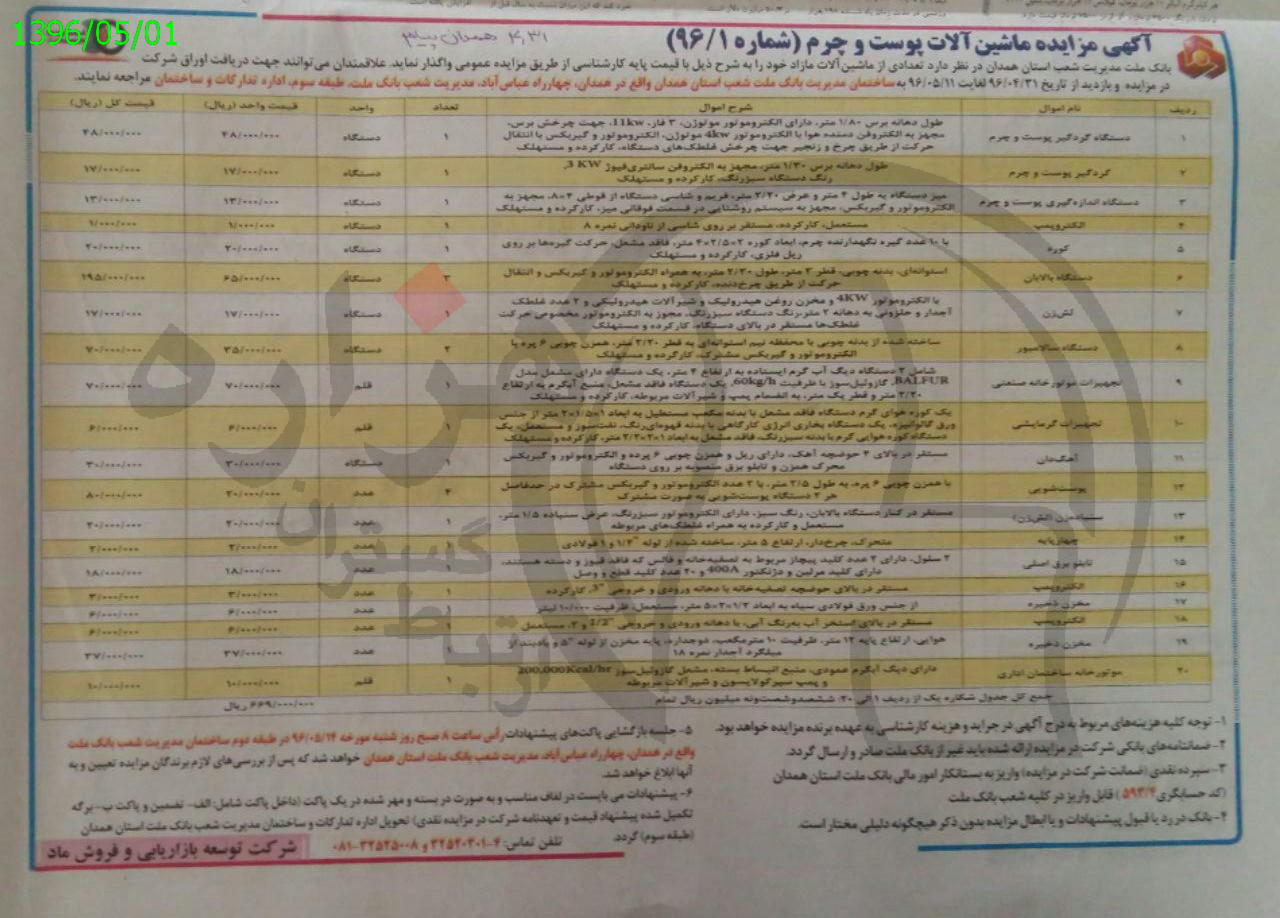 1396/05/01
آگهی مزایده ماشین‌آلات پوست و چرم (شماره ۹۶/۱)
بانک ملت مدیریت شعب استان همدان در نظر دارد تعدادی از ماشین‌آلات مازاد خود را به شرح ذیل با قیمت پایه کارشناسی از طریق مزایده عمومی واگذار نماید. علاقمندان می‌توانند جهت دریافت اوراق شرکت
در مزایده و بازدید از تاریخ ۹۶/۰۴/۳۱ لغایت ۹۶/۰۵/۱۱ به ساختمان مدیریت بانک ملت شعب استان همدان واقع در همدان، چهارراه عباس‌آباد، مدیریت شعب بانک ملت، طبقه سوم، اداره تدارکات و ساختمان مراجعه نمایند.
ردیف نام اموال شرح اموال تعداد واحد قیمت واحد (ریال) قیمت کل (ریال)
طول دهانه برس ۱/۸۰ متر، دارای الکتروموتور موتوژن، ۳ فاز، 11kw، جهت چرخش برس،
۱ دستگاه گردگیر پوست و چرم مجهز به الکتروفن دمنده هوا با الکتروموتور 4kw موتوژن، الکتروموتور و گیربکس با انتقال ۱ دستگاه ۴۸/۰۰۰/۰۰۰ ۴۸/۰۰۰/۰۰۰
حرکت از طریق چرخ و زنجیر جهت چرخش غلطک‌های دستگاه، کارکرده و مستهلک
طول دهانه برس ۱/۳۰ متر، مجهز به الکتروفن سانتریفیوژ 3 KW,
۲ گردگیر پوست و چرم رنگ دستگاه سبزرنگ، کارکرده و مستهلک ۱ دستگاه ۱۷/۰۰۰/۰۰۰ ۱۷/۰۰۰/۰۰۰
میز دستگاه به طول ۴ متر و عرض ۲/۲۰ متر، فریم و شاسی دستگاه از قوطی ۴×۸، مجهز به
۳ دستگاه اندازه‌گیری پوست و چرم الکتروموتور و گیربکس، مجهز به سیستم روشنایی در قسمت فوقانی میز، کارکرده و مستهلک ۱ دستگاه ۱۳/۰۰۰/۰۰۰ ۱۳/۰۰۰/۰۰۰
۴ الکتروپمپ مستعمل، کارکرده، مستقر بر روی شاسی از ناودانی نمره ۸ ۱ دستگاه ۱/۰۰۰/۰۰۰ ۱/۰۰۰/۰۰۰
با ۱۰ عدد گیره نگهدارنده چرم، ابعاد کوره ۲×۲/۵×۴ متر، فاقد مشعل، حرکت گیره‌ها بر روی
۵ کوره ریل فلزی، کارکرده و مستهلک ۱ دستگاه ۲۰/۰۰۰/۰۰۰ ۲۰/۰۰۰/۰۰۰
استوانه‌ای، بدنه چوبی، قطر ۳ متر، طول ۲/۳۰ متر، به همراه الکتروموتور و گیربکس و انتقال
۶ دستگاه بالابان حرکت از طریق چرخ‌دنده، کارکرده و مستهلک ۳ دستگاه ۶۵/۰۰۰/۰۰۰ ۱۹۵/۰۰۰/۰۰۰
با الکتروموتور 4KW و مخزن روغن هیدرولیک و شیرآلات هیدرولیکی و ۲ عدد غلطک
۷ لش‌زن آجدار و حلزونی به دهانه ۲ متر، رنگ دستگاه سبزرنگ، مجوز به الکتروموتور مخصوص حرکت ۱ دستگاه ۱۷/۰۰۰/۰۰۰ ۱۷/۰۰۰/۰۰۰
غلطک‌ها مستقر در بالای دستگاه، کارکرده و مستهلک
ساخته شده از بدنه چوبی با محفظه نیم استوانه‌ای به قطر ۲/۲۰ متر، همزن چوبی ۶ پره با
۸ دستگاه سالامبور الکتروموتور و گیربکس مشترک، کارکرده و مستهلک ۲ دستگاه ۳۵/۰۰۰/۰۰۰ ۷۰/۰۰۰/۰۰۰
شامل ۲ دستگاه دیگ آب گرم ایستاده به ارتفاع ۴ متر، یک دستگاه دارای مشعل مدل
۹ تجهیزات موتورخانه صنعتی BALFUR، گازوئیل‌سوز با ظرفیت 60kg/h، یک دستگاه فاقد مشعل، منبع آبگرم به ارتفاع ۱ قلم ۷۰/۰۰۰/۰۰۰ ۷۰/۰۰۰/۰۰۰
۲/۲۰ متر و قطر یک متر، به انضمام پمپ و شیرآلات مربوطه، کارکرده و مستهلک
یک کوره هوای گرم دستگاه فاقد مشعل با بدنه مکعب مستطیل به ابعاد ۱×۱/۵×۲ متر از جنس
۱۰ تجهیزات گرمایشی ورق گالوانیزه، یک دستگاه بخاری انرژی کارگاهی با بدنه قهوه‌ای‌رنگ، نفت‌سوز و مستعمل، یک ۱ قلم ۶/۰۰۰/۰۰۰ ۶/۰۰۰/۰۰۰
دستگاه کوره هوایی گرم با بدنه سبزرنگ، فاقد مشعل به ابعاد ۱×۲×۲/۲ متر، کارکرده و مستهلک
مستقر در بالای ۲ حوضچه آهک، دارای ریل و همزن چوبی ۶ پرده و الکتروموتور و گیربکس
۱۱ آهک‌دان محرک همزن و تابلو برق منصوبه بر روی دستگاه ۱ دستگاه ۳۰/۰۰۰/۰۰۰ ۳۰/۰۰۰/۰۰۰
با همزن چوبی ۶ پره، به طول ۲/۵ متر، با ۲ عدد الکتروموتور و گیربکس مشترک در حدفاصل
۱۲ پوست‌شویی هر ۲ دستگاه پوست‌شویی به صورت مشترک ۴ عدد ۲۰/۰۰۰/۰۰۰ ۸۰/۰۰۰/۰۰۰
مستقر در کنار دستگاه بالابان، رنگ سبز، دارای الکتروموتور سبزرنگ، عرض سنباده ۱/۵ متر،
۱۳ سنباده‌زن (لش‌زن) مستعمل و کارکرده به همراه غلطک‌های مربوطه ۱ عدد ۲۰/۰۰۰/۰۰۰ ۲۰/۰۰۰/۰۰۰
۱۴ چهارپایه متحرک، چرخ‌دار، ارتفاع ۵ متر، ساخته شده از لوله "۱/۴ و ۱ فولادی ۱ عدد ۲/۰۰۰/۰۰۰ ۲/۰۰۰/۰۰۰
۲ سلول، دارای ۲ عدد کلید پیچاز مربوط به تصفیه‌خانه و فالس که فاقد فیوز و دسته هستند،
۱۵ تابلو برق اصلی دارای کلید مرلین و دژنکتور 400A و ۲۰ عدد کلید قطع و وصل ۱ عدد ۱۸/۰۰۰/۰۰۰ ۱۸/۰۰۰/۰۰۰
۱۶ الکتروپمپ مستقر در بالای حوضچه تصفیه‌خانه با دهانه ورودی و خروجی "3، کارکرده ۱ عدد ۳/۰۰۰/۰۰۰ ۳/۰۰۰/۰۰۰
۱۷ مخزن ذخیره از جنس ورق فولادی سیاه به ابعاد ۱/۲×۲×۵ متر، مستعمل، ظرفیت ۱۰/۰۰۰ لیتر ۱ عدد ۶/۰۰۰/۰۰۰ ۶/۰۰۰/۰۰۰
۱۸ الکتروپمپ مستقر در بالای استخر آب به‌رنگ آبی، با دهانه ورودی و خروجی "1/2 و ۲، مستعمل ۱ عدد ۶/۰۰۰/۰۰۰ ۶/۰۰۰/۰۰۰
هوایی، ارتفاع پایه ۱۲ متر، ظرفیت ۱۰ مترمکعب، دوجداره، پایه مخزن از لوله "۵ و بادبند از
۱۹ مخزن ذخیره میلگرد آجدار نمره ۱۸ ۱ عدد ۳۷/۰۰۰/۰۰۰ ۳۷/۰۰۰/۰۰۰
دارای دیگ آبگرم عمودی، منبع انبساط بسته، مشعل گازوئیل‌سوز 200,000Kcal/hr
۲۰ موتورخانه ساختمان اداری و پمپ سیرکولاسیون و شیرآلات مربوطه ۱ قلم ۱۰/۰۰۰/۰۰۰ ۱۰/۰۰۰/۰۰۰
جمع کل جدول شکاره یک از ردیف ۱ الی ۲۰: ششصدوشصت‌ونه میلیون ریال تمام ۶۶۹/۰۰۰/۰۰۰ ریال
۱- توجه کلیه هزینه‌های مربوط به درج آگهی در جراید و هزینه کارشناسی به عهده برنده مزایده خواهد بود.
۲- ضمانتنامه‌های بانکی شرکت در مزایده ارائه شده باید غیر از بانک ملت صادر و ارسال گردد.
۳- سپرده نقدی (ضمانت شرکت در مزایده) واریز به بستانکار امور مالی بانک ملت استان همدان
(کد حسابگری ۵۹۳/۴) قابل واریز در کلیه شعب بانک ملت.
۴- بانک در رد یا قبول پیشنهادات و یا ابطال مزایده بدون ذکر هیچگونه دلیلی مختار است.
۵- جلسه بازگشایی پاکت‌های پیشنهادات رأس ساعت ۸ صبح روز شنبه مورخه ۹۶/۰۵/۱۴ در طبقه دوم ساختمان مدیریت شعب بانک ملت
واقع در همدان، چهارراه عباس‌آباد، مدیریت شعب بانک ملت استان همدان خواهد شد که پس از بررسی‌های لازم برندگان مزایده تعیین و به
آنها ابلاغ خواهد شد.
۶- پیشنهادات می بایست در لفاف مناسب و به صورت در بسته و مهر شده در یک پاکت (داخل پاکت شامل: الف- تضمین و پاکت ب- برگه
تکمیل شده پیشنهاد قیمت و تعهدنامه شرکت در مزایده نقدی) تحویل اداره تدارکات و ساختمان مدیریت شعب بانک ملت استان همدان
(طبقه سوم) گردد. تلفن تماس: ۴-۳۲۵۲۰۳۰۱ و ۳۲۵۲۵۰۰۸-۰۸۱
شرکت توسعه بازاریابی و فروش ماد
هزاره
ارتباط گستران